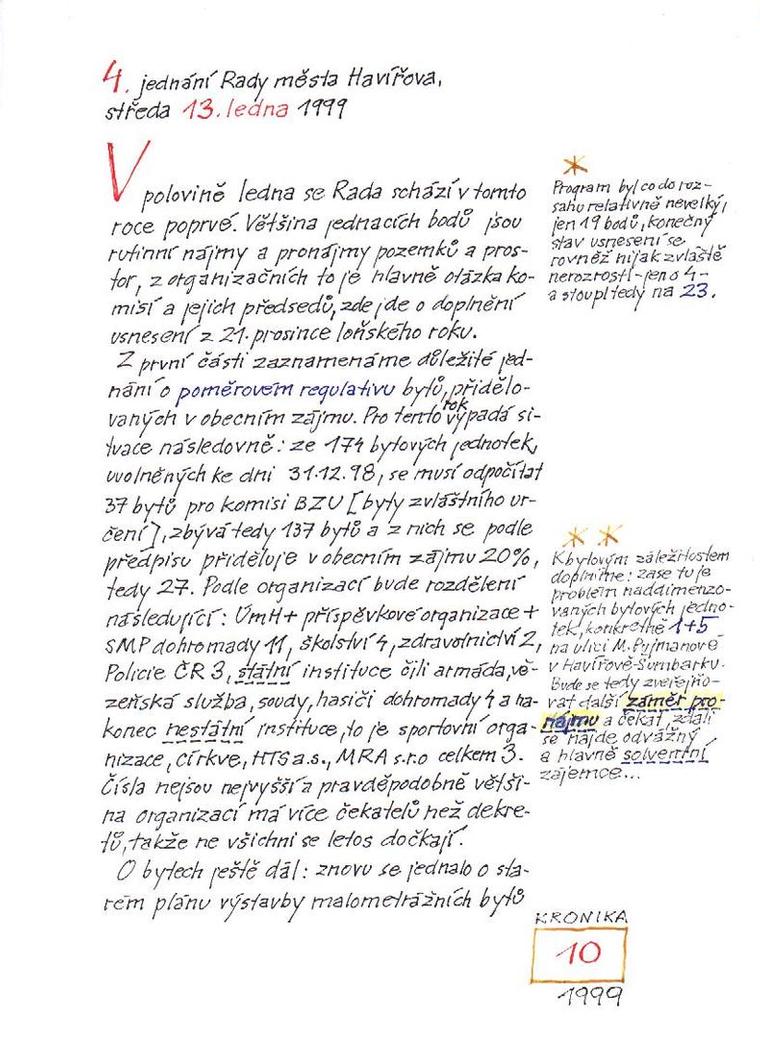 4. jednání Rady města Havířova,
středa 13. ledna 1999
V polovině ledna se Rada schází v tomto
roce poprvé. Většina jednacích bodů jsou
rutinní nájmy a pronájmy pozemků a pros-
tor, z organizačních to je hlavně otázka ko-
misí a jejich předsedů, zde jde o doplnění
usnesení z 21. prosince loňského roku.
Z první části zaznamenáme důležité jed-
nání o poměrovém regulativu bytů, přidělo-
vaných v obecním zájmu. Pro tento rok vypadá si-
tuace následovně: ze 174 bytových jednotek,
uvolněných ke dni 31.12.98, se musí odpočítat
37 bytů pro komisi BZU [byty zvláštního ur-
čení], zbývá tedy 137 bytů a z nich se podle
předpisu přiděluje v obecním zájmu 20%,
tedy 27. Podle organizací bude rozdělení
následující: ÚmH + příspěvkové organizace +
SMP dohromady 11, školství 4, zdravotnictví 2,
Policie ČR 3, státní instituce čili armáda, vě-
zeňská služba, soudy, hasiči dohromady 4 a na-
konec nestátní instituce, to je sportovní orga-
nizace, církve, HTS a.s., MRA s.r.o celkem 3.
Čísla nejsou nejvyšší a pravděpodobně větši-
na organizací má více čekatelů než dekre-
tů, takže ne všichni se letos dočkají.
O bytech ještě dál: znovu se jednalo o sta-
rém plánu výstavby malometrážních bytů
*
Program byl co do roz-
sahu relativně nevelký,
jen 19 bodů, konečný
stav usnesení se
rovněž nijak zvláště
nerozrostl - jen o 4 -
a stoupl tedy na 23.
* *
K bytovým záležitostem
doplníme: zase tu je
problém naddimenzo-
vaných bytových jedno-
tek, konkrétně 1+5
na ulici M. Pujmanové
v Havířově-Šumbarku.
Bude se tedy zveřejňo-
vat další záměr pro-
nájmu a čekat, zdali
se najde odvážný
a hlavně solventní
zájemce...
KRONIKA
10
1999